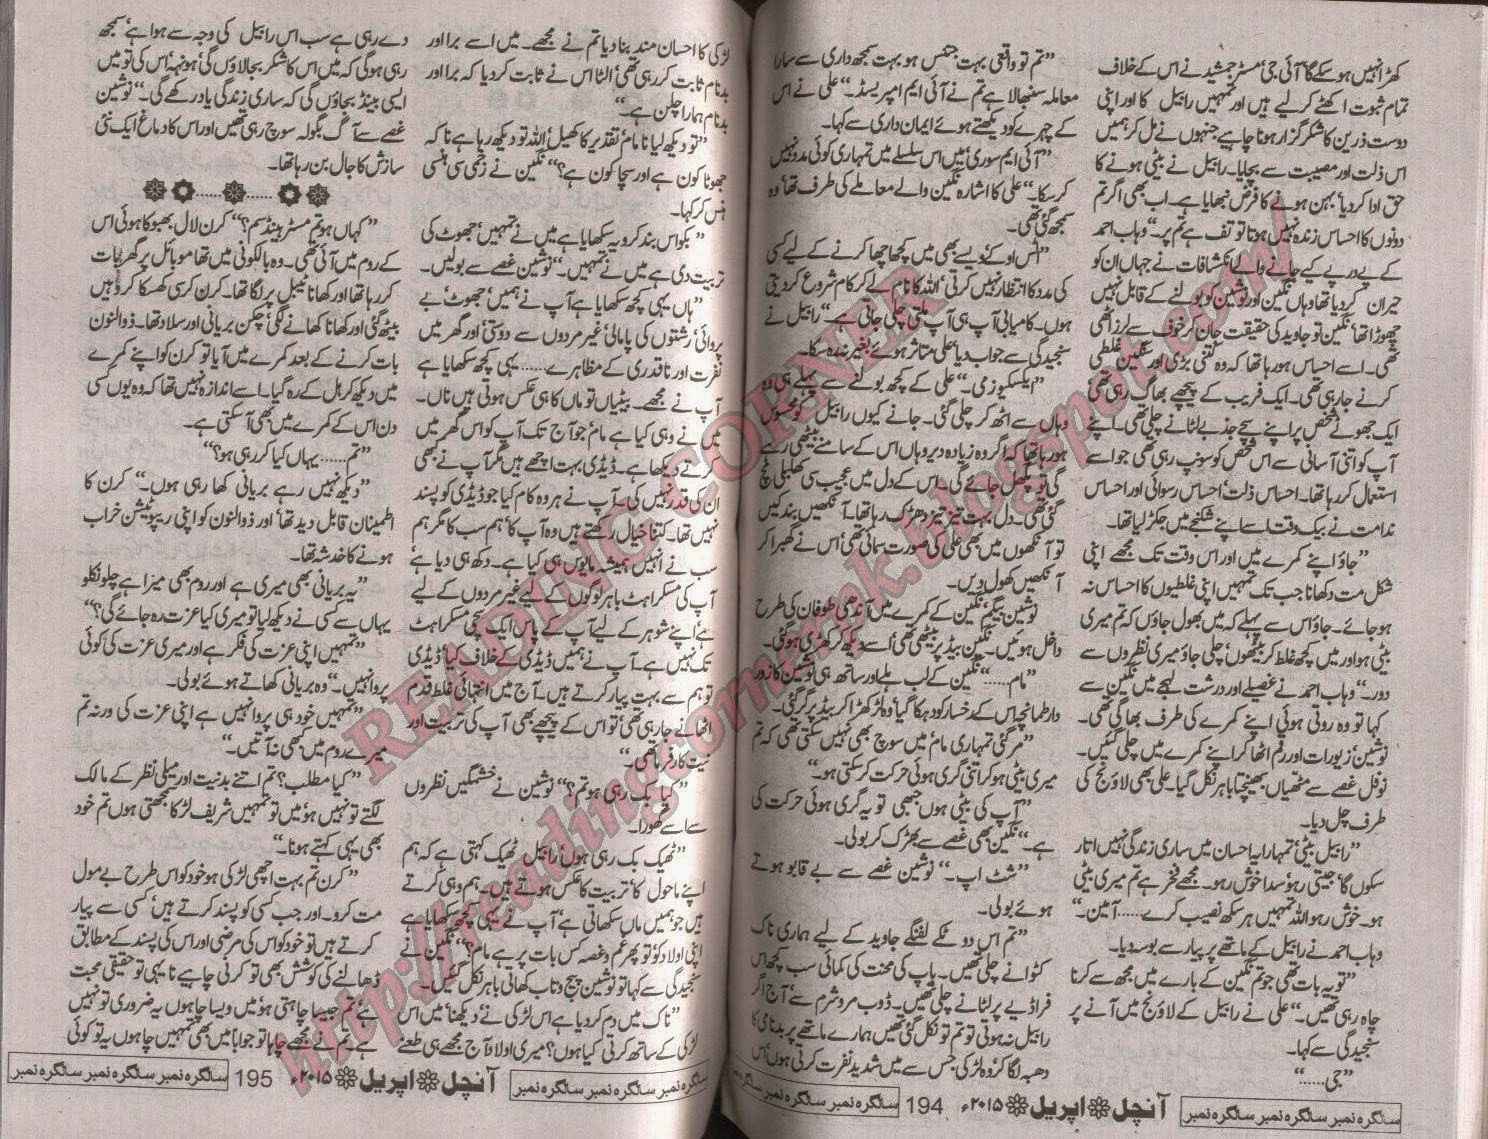 کھڑا نہیں ہوسکے گا‘ آئی جی‘ مسٹر جمشید نے اس کے خلاف
تمام ثبوت اکھٹے کرلیے ہیں اور تمہیں رابیل کا اور اپنی
دوست ذرین کا شکر گزار ہونا چاہیے جنہوں نے مل کر ہمیں
اس ذلت اور مصیبت سے بچایا۔ رابیل نے بیٹی ہونے کا
حق ادا کردیا‘ بہن ہونے کا فرض نبھایا ہے۔ اب بھی اگر تم
دونوں کا احساس زندہ نہیں ہوتا تو تف ہے تم پر۔“ وہاب احمد
کے پے در پے کیے جانے والے انکشافات نے جہاں ان کو
حیران کردیا تھا وہاں نگین اور نوشین کو بولنے کے قابل نہیں
چھوڑا تھا‘ نگین تو جاوید کی حقیقت جان کر خوف سے لرز اٹھی
تھی۔ اسے احساس ہورہا تھا کہ وہ کتنی بڑی اور سنگین غلطی
کرنے جارہی تھی۔ ایک فریب کے پیچھے بھاگ رہی تھی‘
ایک جھوٹے شخص پر اپنے سچے جذبے لٹانے چلی تھی۔ اپنے
آپ کو اتنی آسانی سے اس شخص کو سونپ رہی تھی جو اسے
استعمال کررہا تھا۔ احساس ذلت‘ احساس رسوائی اور احساس
ندامت نے بیک وقت اسے اپنے شکنجے میں جکڑ لیا تھا۔
”جاؤ اپنے کمرے میں اور اس وقت تک مجھے اپنی
شکل مت دکھانا جب تک تمہیں اپنی غلطیوں کا احساس نہ
ہوجائے۔ جاؤ اس سے پہلے کہ میں بھول جاؤں کہ تم میری
بیٹی ہو اور میں کچھ غلط کر بیٹھوں‘ چلی جاؤ میری نظروں سے
دور۔“ وہاب احمد نے غصیلے اور درشت لہجے میں نگین سے
کہا تو وہ روتی ہوئی اپنے کمرے کی طرف بھاگی تھی۔
نوشین زیورات اور رقم اٹھا کر اپنے کمرے میں چلی گئیں۔
نوفل غصے سے مٹھیاں بھینچتا باہر نکل گیا۔ علی بھی لاؤنج کی
طرف چل دیا۔
”رابیل بیٹی‘ تمہارا یہ احسان میں ساری زندگی نہیں اتار
سکوں گا‘ جیتی رہو‘ سدا خوش رہو۔ مجھے فخر ہے تم میری بیٹی
ہو۔ خوش رہو اللہ تمہیں ہر سکھ نصیب کرے..... آمین۔“
وہاب احمد نے رابیل کے ماتھے پر پیار سے بوسہ دیا۔
”تو یہ بات تھی جو تم نگین کے بارے میں مجھ سے کرنا
چاہ رہی تھیں۔“ علی نے رابیل کے لاؤنج میں آنے پر
سنجیدگی سے کہا۔
”جی.....“
”تم تو واقعی بہت جینئس ہو بہت سمجھ داری سے سارا
معاملہ سنبھالا ہے تم نے آئی ایم امپریسڈ۔“ علی نے اس
کے چہرے کو دیکھتے ہوئے ایمان داری سے کہا۔
”آئی ایم سوری‘ میں اس سلسلے میں تمہاری کوئی مدد نہیں
کرسکا۔“ علی کا اشارہ نگین والے معاملے کی طرف تھا‘ وہ
سمجھ گئی تھی۔
”اٹس اوکے‘ ویسے بھی میں کچھ اچھا کرنے کے لیے کسی
کی مدد کا انتظار نہیں کرتی‘ اللہ کا نام لے کر کام شروع کردیتی
ہوں۔ کامیابی آپ ہی آپ ملتی چلی جاتی ہے۔“ رابیل نے
سنجیدگی سے جواب دیا‘ علی متاثر ہوئے بغیر نہ رہ سکا۔
”ایکسکیوز می۔“ علی کے کچھ بولنے سے پہلے ہی وہ
وہاں سے اٹھ کر چلی گئی۔ جانے کیوں رابیل کو محسوس
ہورہا تھا کہ اگر وہ زیادہ دیر وہاں اس کے سامنے بیٹھی رہے
گی تو پگھل جائے گی۔ اس کے دل میں عجیب سی کھلبلی مچ
گئی تھی۔ دل بہت تیز تیز دھڑک رہا تھا۔ آنکھیں بند کیں
تو آنکھوں میں بھی علی کی صورت سمائی تھی‘ اس نے گھبرا کر
آنکھیں کھول دیں۔
نوشین بیگم نگین کے کمرے میں آندھی طوفان کی طرح
داخل ہوئیں۔ نگین بیڈ پر بیٹھی تھی‘ اسے دیکھ کر کھڑی ہوگئی۔
”مام.....“ نگین کے لب ہلے اور ساتھ ہی نوشین کا زور
دار طمانچہ اس کے رخسار کو دہکا گیا‘ وہ لڑکھڑا کر بیڈ پر گر گئی۔
”مر گئی تمہاری مام‘ میں سوچ بھی نہیں سکتی تھی کہ تم
میری بیٹی ہوکر اتنی گری ہوئی حرکت کرسکتی ہو۔“
”آپ کی بیٹی ہوں جبھی تو یہ گری ہوئی حرکت کی
ہے۔“ نگین بھی غصے سے بھڑک کر بولی۔
”شٹ اپ۔“ نوشین غصے سے بے قابو ہوتے
ہوئے بولی۔
”تم اس دو ٹکے لفنگے جاوید کے لیے ہماری ناک
کٹوانے چلی تھیں۔ باپ کی محنت کی کمائی سب کچھ اس
فراڈیے پر لٹانے چلی تھیں۔ ڈوب مرو شرم سے‘ آج اگر
رابیل نہ ہوتی تو تم تو نکل گئی تھیں ہمارے ماتھے پر بدنامی کا
دھبہ لگا کر وہ لڑکی جس سے میں شدید نفرت کرتی ہوں‘ اس
سالگرہ نمبر سالگرہ نمبر سالگرہ نمبر آنچل اپریل ۲۰۱۵ء 194 سالگرہ نمبر سالگرہ نمبر سالگرہ نمبر
لڑکی کا احسان مند بنا دیا تم نے مجھے۔ میں اسے برا اور
بدنام ثابت کررہی تھی‘ الٹا اس نے ثابت کردیا کہ برا اور
بدنام ہمارا چلن ہے۔“
”تو دیکھ لیا نا مام‘ تقدیر کا کھیل‘ اللہ تو دیکھ رہا ہے نا کہ
جھوٹا کون ہے اور سچا کون ہے؟“ نگین نے زخمی سی ہنسی
ہنس کر کہا۔
”بکواس بند کرو یہ سکھایا ہے میں نے تمہیں‘ جھوٹ کی
تربیت دی ہے میں نے تمہیں۔“ نوشین غصے سے بولیں۔
”ہاں یہی کچھ سکھایا ہے آپ نے ہمیں‘ جھوٹ‘ بے
پروائی‘ رشتوں کی پامالی‘ غیر مردوں سے دوستی‘ اور گھر میں
نفرت اور ناقدری کے مظاہرے...... یہی کچھ سکھایا ہے
آپ نے مجھے۔ بیٹیاں تو ماں کا ہی عکس ہوتی ہیں ناں۔
میں نے وہی کیا ہے مام‘ جو آج تک آپ کو اس گھر میں
کرتے دیکھا ہے۔ ڈیڈی بہت اچھے ہیں مگر آپ نے بھی
ان کی قدر نہیں کی۔ آپ نے ہر وہ کام کیا جو ڈیڈی کو پسند
نہیں تھا۔ کتنا خیال رکھتے ہیں وہ آپ کا‘ ہم سب کا مگر ہم
سب نے انہیں ہمیشہ مایوس ہی کیا ہے۔ دکھ ہی دیا ہے‘
آپ کی مسکراہٹ باہر لوگوں کے لیے‘ غیر مردوں کے لیے
ہے‘ اپنے شوہر کے لیے آپ کے پاس ایک سچی مسکراہٹ
تک نہیں ہے۔ آپ نے ہمیں ڈیڈی کے خلاف کیا‘ ڈیڈی
تو ہم سے بہت پیار کرتے ہیں۔ آج میں انتہائی غلط قدم
اٹھانے جارہی تھی‘ تو اس کے پیچھے بھی آپ کی تربیت اور
نیت کارفرما تھی۔“
”کیا بک رہی ہو تم؟“ نوشین نے خشمگیں نظروں
سے اسے گھورا۔
”ٹھیک بک رہی ہوں‘ رابیل ٹھیک کہتی ہے کہ ہم
اپنے ماحول کا‘ تربیت کا عکس ہوتے ہیں۔ ہم وہی کرتے
ہیں جو ہمیں ماں سکھاتی ہے‘ آپ نے یہی کچھ سکھایا ہے
اپنی اولاد کو‘ تو پھر غم و غصہ کس بات پر ہے مام؟“ نگین نے
سنجیدگی سے کہا تو نوشین پیچ و تاب کھاتی باہر نکل گئیں۔
”ناک میں دم کردیا ہے اس لڑکی نے دیکھنا‘ میں اس
لڑکی کے ساتھ کرتی کیا ہوں؟ میری اولاد آج مجھے ہی طعنے
دے رہی ہے سب اس رابیل کی وجہ سے ہوا ہے‘ سمجھ
رہی ہوگی کہ میں اس کا شکر بجا لاؤں گی‘ ہونہہ‘ اس کی تو میں
ایسی بینڈ بجاؤں گی کہ ساری زندگی یاد رکھے گی۔“ نوشین
غصے سے آگ بگولہ سوچ رہی تھیں اور اس کا دماغ ایک نئی
سازش کا جال بن رہا تھا۔
”کہاں ہو تم مسٹر ہینڈسم؟“ کرن لال بھبوکا ہوئی اس
کے روم میں آئی تھی۔ وہ بالکونی میں تھا موبائل پر گھر بات
کررہا تھا اور کھانا ٹیبل پر لگا تھا۔ کرن کرسی کھسکا کر وہیں
بیٹھ گئی اور کھانا کھانے لگی‘ چکن بریانی اور سلاد تھا۔ ذوالنون
بات کرنے کے بعد کمرے میں آیا تو کرن کو اپنے کمرے
میں دیکھ کر ہل کے رہ گیا۔ اسے اندازہ نہیں تھا کہ وہ یوں کسی
دن اس کے کمرے میں بھی آسکتی ہے۔
”تم...... یہاں کیا کررہی ہو؟“
”دیکھ نہیں رہے بریانی کھا رہی ہوں۔“ کرن کا
اطمینان قابل دید تھا‘ اور ذوالنون کو اپنی ریپوٹیشن خراب
ہونے کا خدشہ تھا۔
”یہ بریانی بھی میری ہے اور روم بھی میرا ہے چلو نکلو
یہاں سے کسی نے دیکھ لیا تو میری کیا عزت رہ جائے گی؟“
”تمہیں اپنی عزت کی فکر ہے اور میری عزت کی کوئی
پروا نہیں۔“ وہ بریانی کھاتے ہوئے بولی۔
”تمہیں خود ہی پروا نہیں ہے اپنی عزت کی ورنہ تم
میرے روم میں کبھی نہ آتیں۔“
”کیا مطلب؟ تم اتنے بدنیت اور میلی نظر کے مالک
لگتے تو نہیں ہو‘ میں تو تمہیں شریف لڑکا سمجھتی ہوں تم خود
بھی یہی کہتے ہونا۔“
”کرن تم بہت اچھی لڑکی ہو خود کو اس طرح بے مول
مت کرو۔ اور جب کسی کو پسند کرتے ہیں‘ کسی سے پیار
کرتے ہیں تو خود کو اس کی مرضی اور اس کی پسند کے مطابق
ڈھالنے کی کوشش بھی تو کرنی چاہیے نا‘ یہی تو حقیقی محبت
ہے‘ تم جیسا چاہتی ہو‘ میں ویسا چاہوں یہ ضروری تو نہیں
ہے‘ تم نے مجھے چاہا تو جوابا میں بھی تمہیں چاہوں یہ تو کوئی
سالگرہ نمبر سالگرہ نمبر سالگرہ نمبر آنچل اپریل ۲۰۱۵ء 195 سالگرہ نمبر سالگرہ نمبر سالگرہ نمبر
READING CORNER
http://readingcornerpk.blogspot.com/